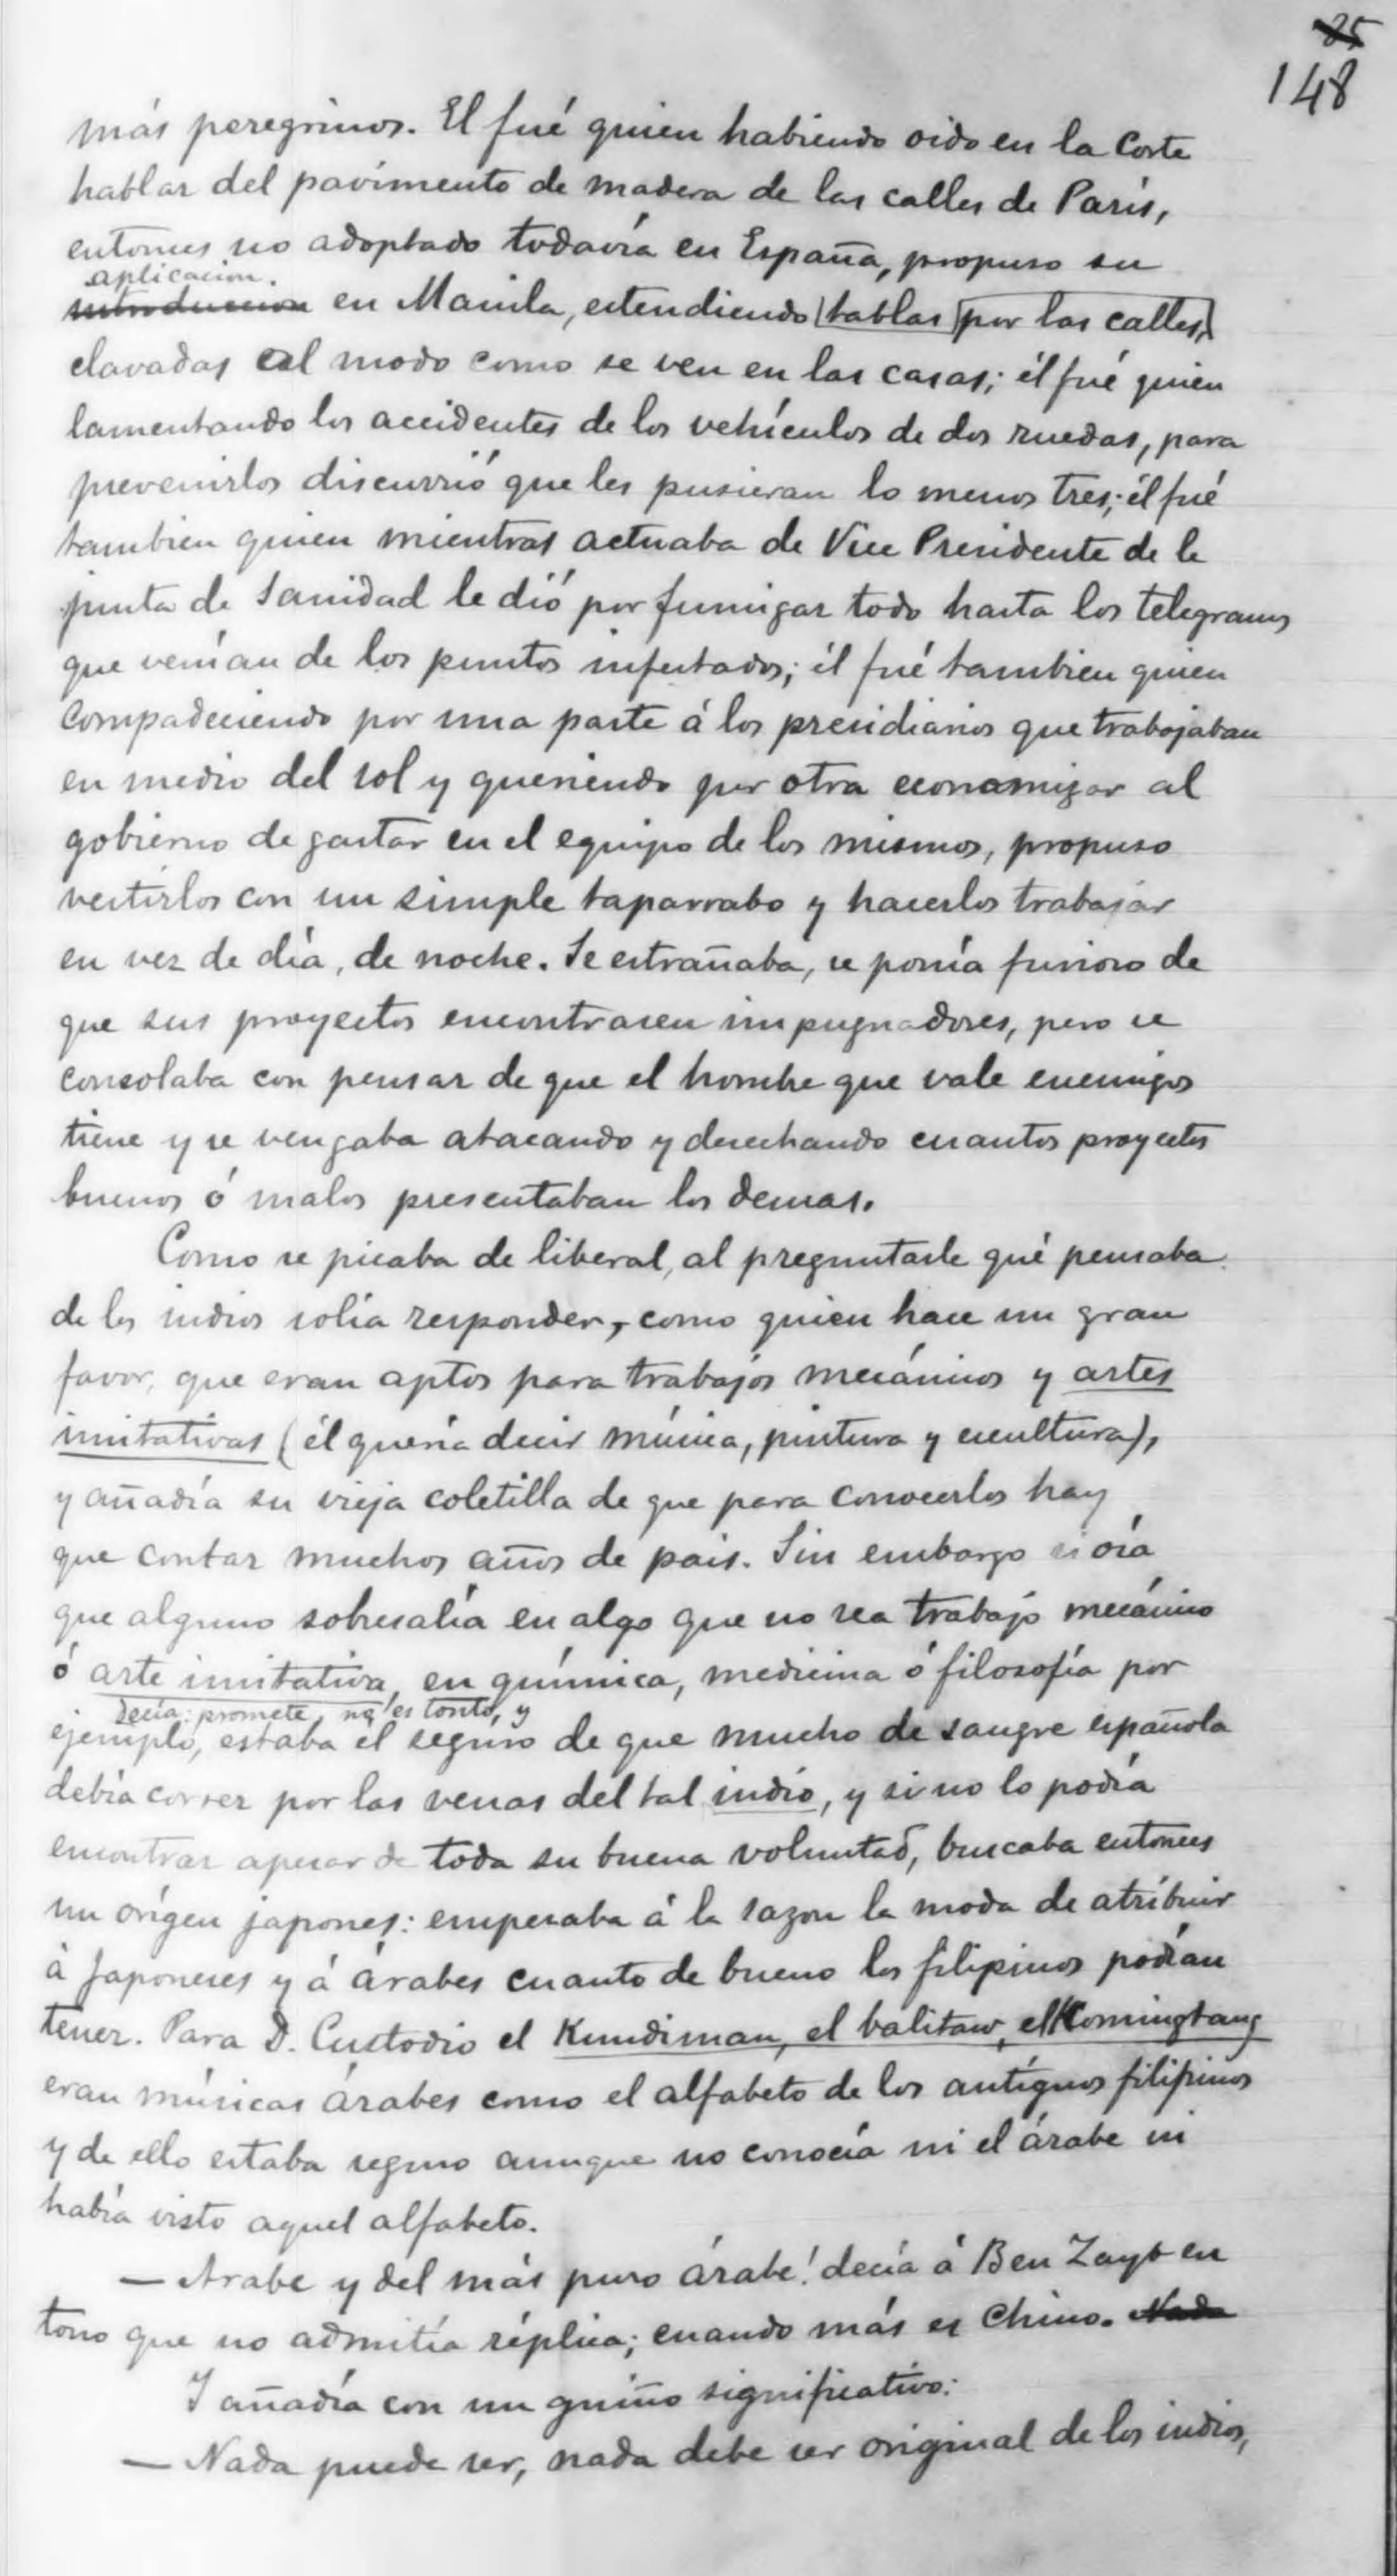 85
148
más peregrinos. El fué quien habiendo oido en la Corte
hablar del pavimento de madera de las calles de París,
entonces no adoptado todavía en España, propuso su
aplicacion.
introduccion en Manila, estendiendo tablas por las calles,
clavadas al modo como se ven en las casas; él fué quien
lamentando los accidentes de los vehículos de dos ruedas, para
prevenirlos discurrió que les pusieran lo menos tres; él fué
tambien quien mientras actuaba de Vice Presidente de la
junta de Sanidad le dió por fumigar todo hasta los telegramas
que venían de los puntos infestados; él fué tambien quien
compadeciendo por una parte á los presidiarios que trabajaban
en medio del sol y queriendo por otra economizar al
gobierno de gastar en el equipo de los mismos, propuso
vestirlos con un simple taparrabo y hacerlos trabajar
en vez de día, de noche. Se estrañaba, se ponía furioso de
que sus proyectos encontrasen impugnadores, pero se
consolaba con pensar de que el hombre que vale enemigos
tiene y se vengaba atacando y desechando cuantos proyectos
buenos ó malos presentaban los demas.
Como se picaba de liberal, al preguntarle qué pensaba
de los indios solía responder, como quien hace un gran
favor, que eran aptos para trabajos mecánicos y artes
imitativas (él quería decir música, pintura y escultura),
y añadía su vieja coletilla de que para conocerlos hay
que contar muchos años de pais. Sin embargo si oía
que alguno sobresalía en algo que no sea trabajo mecánico
ó arte imitativa, en química, medicina ó filosofía por
decía: promete, no es tonto, y
ejemplo, estaba el seguro de que mucho de sangre española
debía correr por las venas del tal indio, y si no lo podía
encontrar apesar de toda su buena voluntad, buscaba entonces
un orígen japones: empezaba á la sazon la moda de atribuir
á Japoneses y á árabes cuanto de bueno los filipinos podían
tener. Para D. Custodio el Kundiman, el balitaw, el Komingtang
eran músicas árabes como el alfabeto de los antíguos filipinos
y de ello estaba seguro aunque no conocía ni el árabe ni
había visto aquel alfabeto.
— Arabe y del más puro árabe! decía á Ben Zayb en
tono que no admitía réplica; cuando más es Chino. Nada
Y añadía con un guiño significativo:
— Nada puede ser, nada debe ser original de los indios,